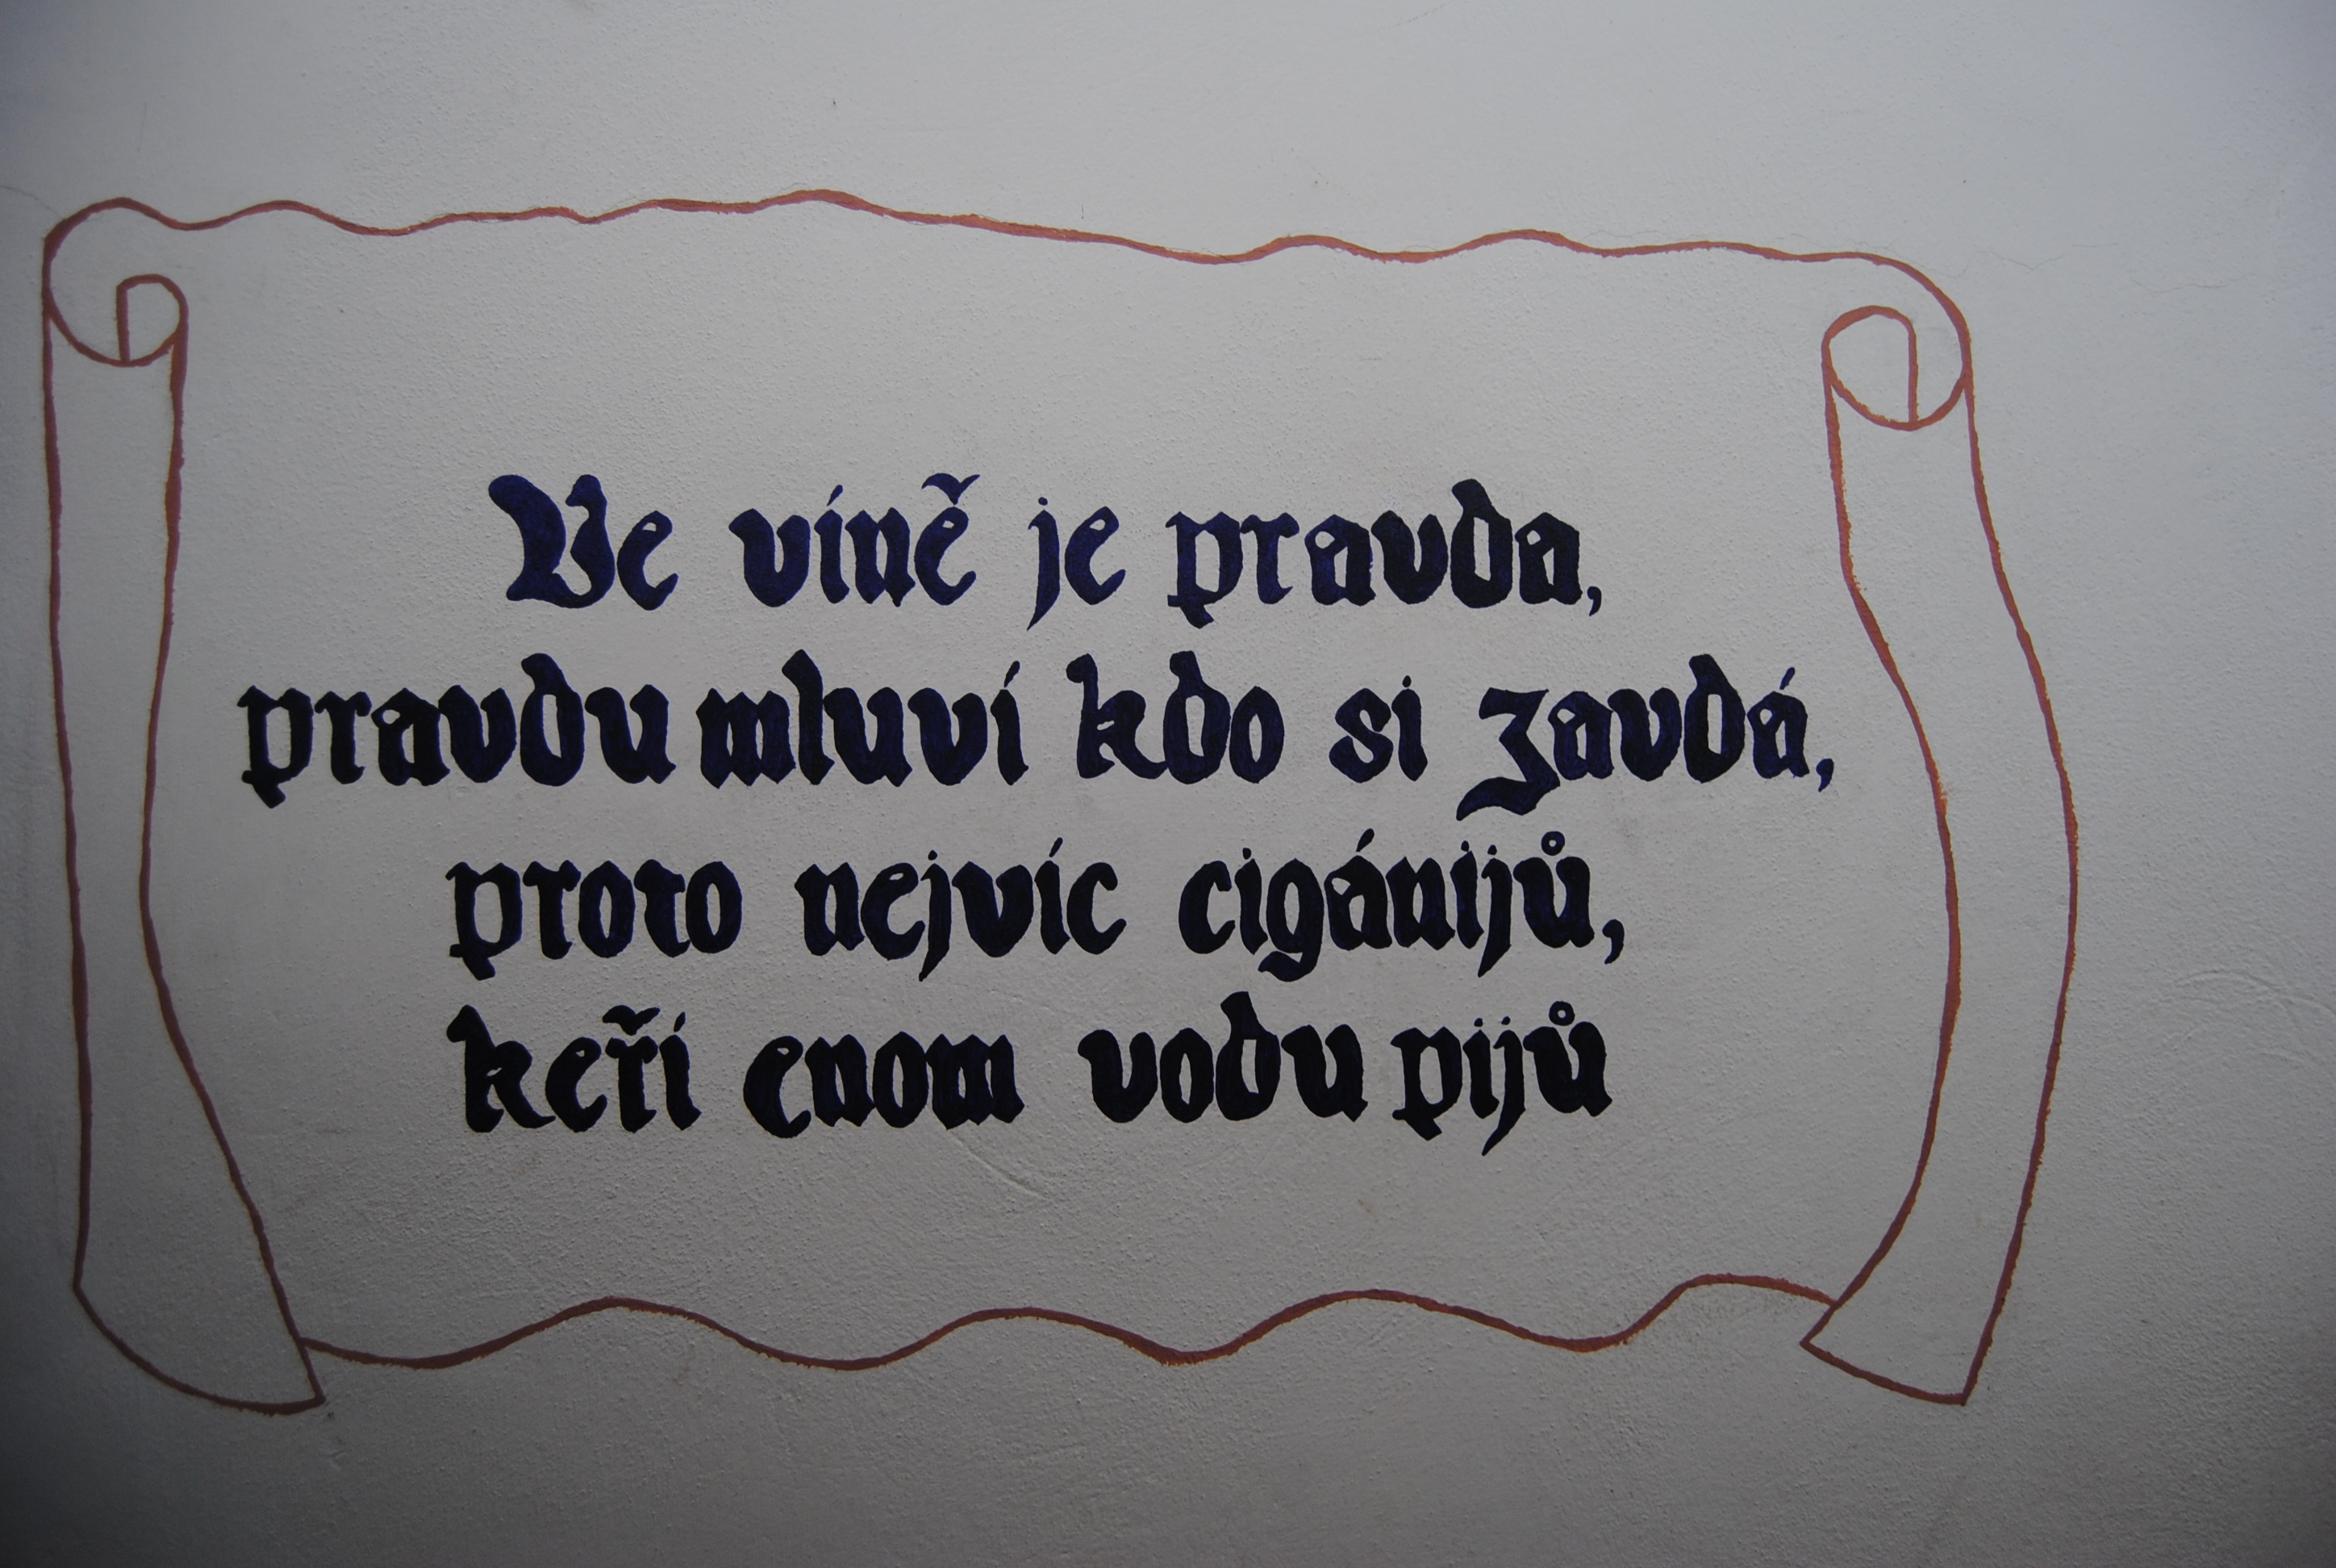 Ve víně je pravda,
pravdu mluví kdo si zavdá,
proto nejvíc cigánijů,
keří enom vodu pijů